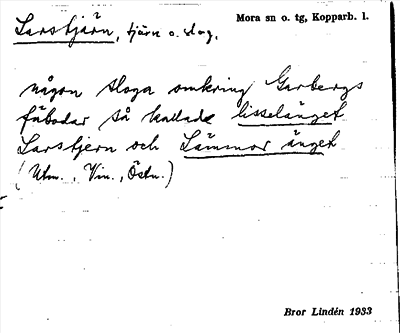 Mora sn o. tg, Kopparb. l.
Larstjärn, tjärn o. slog.
någon sloga omkring Garbergs
fäbodar så kallade lisselänget
Larstjern och Lämmor änget
(Utm., Vin., Östn.)
Bror Lindén 1933